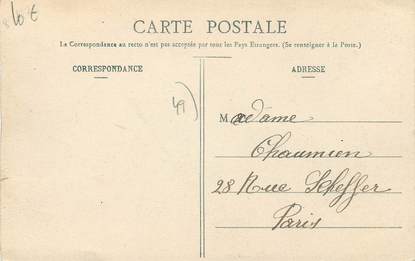 10 €
CARTE POSTALE
La Correspondance au recto n'est pas acceptée par tous les Pays Etrangers. (Se renseigner à la Poste.)
CORRESPONDANCE
ADRESSE
49)
Madame
Chaumien
28 Rue Scheffer
Paris